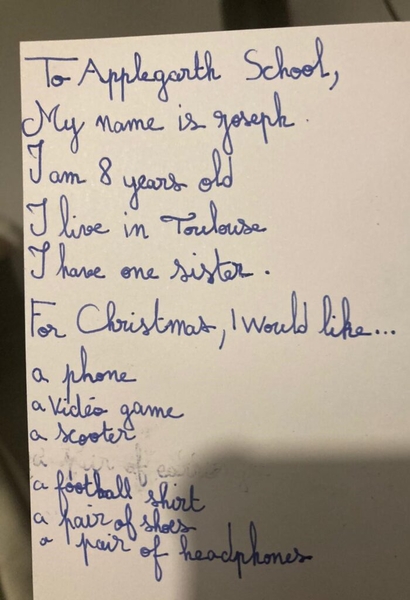 To Applegarth School,
My name is joseph.
I am 8 years old
I live in Toulouse
I have one sister.
For Christmas, I Would like...
a phone
a vidéo game
a scooter
a pair of
a football shirt
a pair of shoes
a pair of headphones